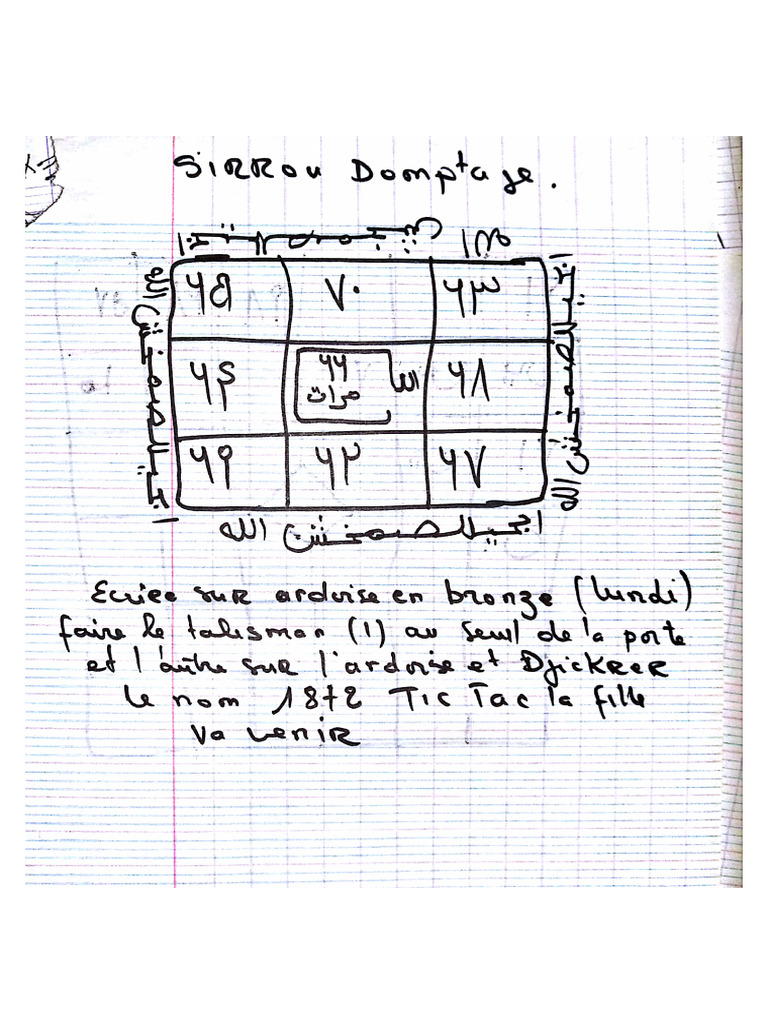 SIRROU Domptage.
الله
٦٥ ٧٠ ٦٣
٦٤ ٦٦ الله ٦٨
مرات
٦٩ ٦٢ ٦٧
الله
Ecrire sur ardoise en bronze (lundi)
faire le talisman (1) au seuil de la porte
et l'autre sur l'ardoise et Djickrer
le nom 1872 Tic Tac la fille
va venir